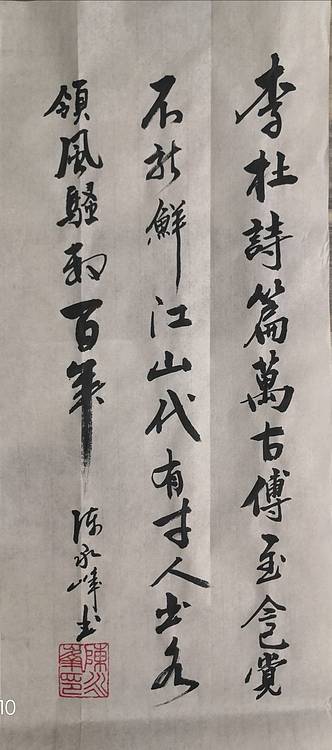 李杜詩篇萬古傳至今已覺
不新鮮江山代有才人出各
領風騷數百年
陳永峰书
10